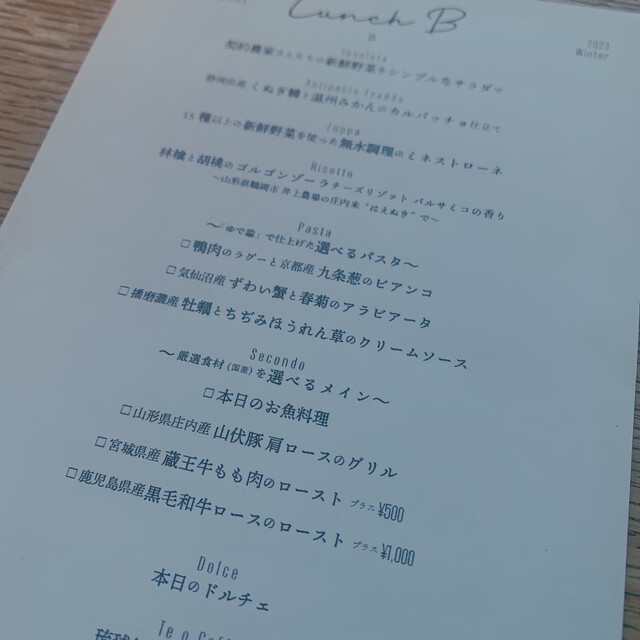 Lunch B
B
2023
Winter
Insalata
契約農家さんたちの新鮮野菜をシンプルなサラダで
Antipasto freddo
静岡県産 くぬぎ鱒と温州みかんのカルパッチョ仕立て
Zuppa
15種以上の新鮮野菜を使った無水調理のミネストローネ
Risotto
林檎と胡桃のゴルゴンゾーラチーズリゾット バルサミコの香り
～山形県鶴岡市 井上農場の庄内米 "はえぬき" で～
Pasta
～「ゆで論」で仕上げた選べるパスタ～
□ 鴨肉のラグーと京都産 九条葱のビアンコ
□ 気仙沼産 ずわい蟹と春菊のアラビアータ
□ 播磨灘産 牡蠣とちぢみほうれん草のクリームソース
Secondo
～厳選食材(国産)を選べるメイン～
□ 本日のお魚料理
□ 山形県庄内産 山伏豚 肩ロースのグリル
□ 宮城県産 蔵王牛もも肉のロースト プラス ¥500
□ 鹿児島県産 黒毛和牛ロースのロースト プラス ¥1,000
Dolce
本日のドルチェ
Te o Caff
琉球